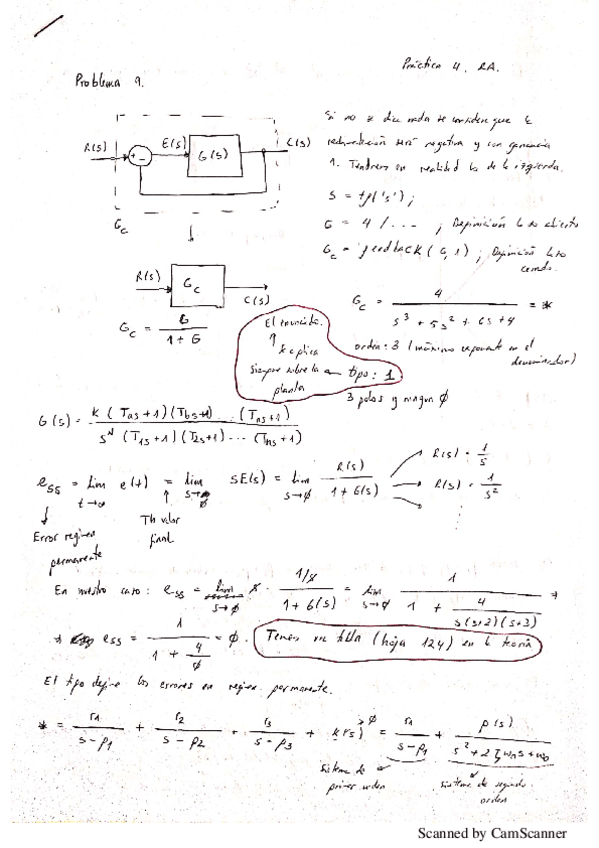 Práctica 4. RA.
Problema 9.
Si no se dice nada se considera que la
realimentación será negativa y con ganancia
1. Tendremos en realidad lo de la izquierda.
R(s) + - E(s) G(s) C(s)
Gc
s = tf('s');
G = 4/... ; Definición lazo abierto
Gc = feedback(G,1) ; Definición lazo
cerrado.
R(s) Gc C(s)
Gc = G / (1 + G)
Gc = 4 / (s³ + 5s² + 6s + 4) = *
orden: 3 (máximo exponente en el
denominador)
El enunciado.
↑ se aplica
siempre sobre la ← tipo: 1
planta
3 polos y ningún ∅
G(s) = K (Tas+1)(Tbs+1) ... (Tns+1) / s^N (T1s+1)(T2s+1) ... (Tns+1)
ess = lim t→∞ e(t) = lim s→∅ sE(s) = lim s→∅ R(s) / (1+G(s))
R(s) = 1/s
R(s) = 1/s²
Error regimen
permanente
Th valor
final
En nuestro caso: ess = lim s→∅ s · 1/s / (1+G(s)) = lim s→∅ 1 / (1 + 4 / (s(s+2)(s+3))) →
→ ess = 1 / (1 + 4/∅) = ∅. Tenemos una tabla (hoja 124) en la teoría
El tipo define los errores en regimen permanente.
* = r1 / (s-p1) + r2 / (s-p2) + r3 / (s-p3) + k(s) → ∅ = r1 / (s-p1) + p(s) / (s² + 2ζωns + ωn)
Sistema de
primer orden
sistema de segundo
orden
Scanned by CamScanner